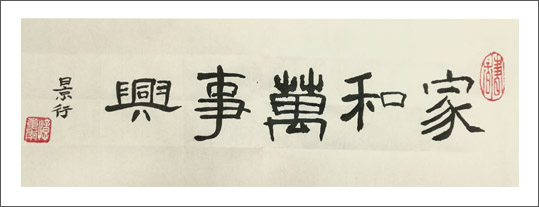 家和萬事興
景行